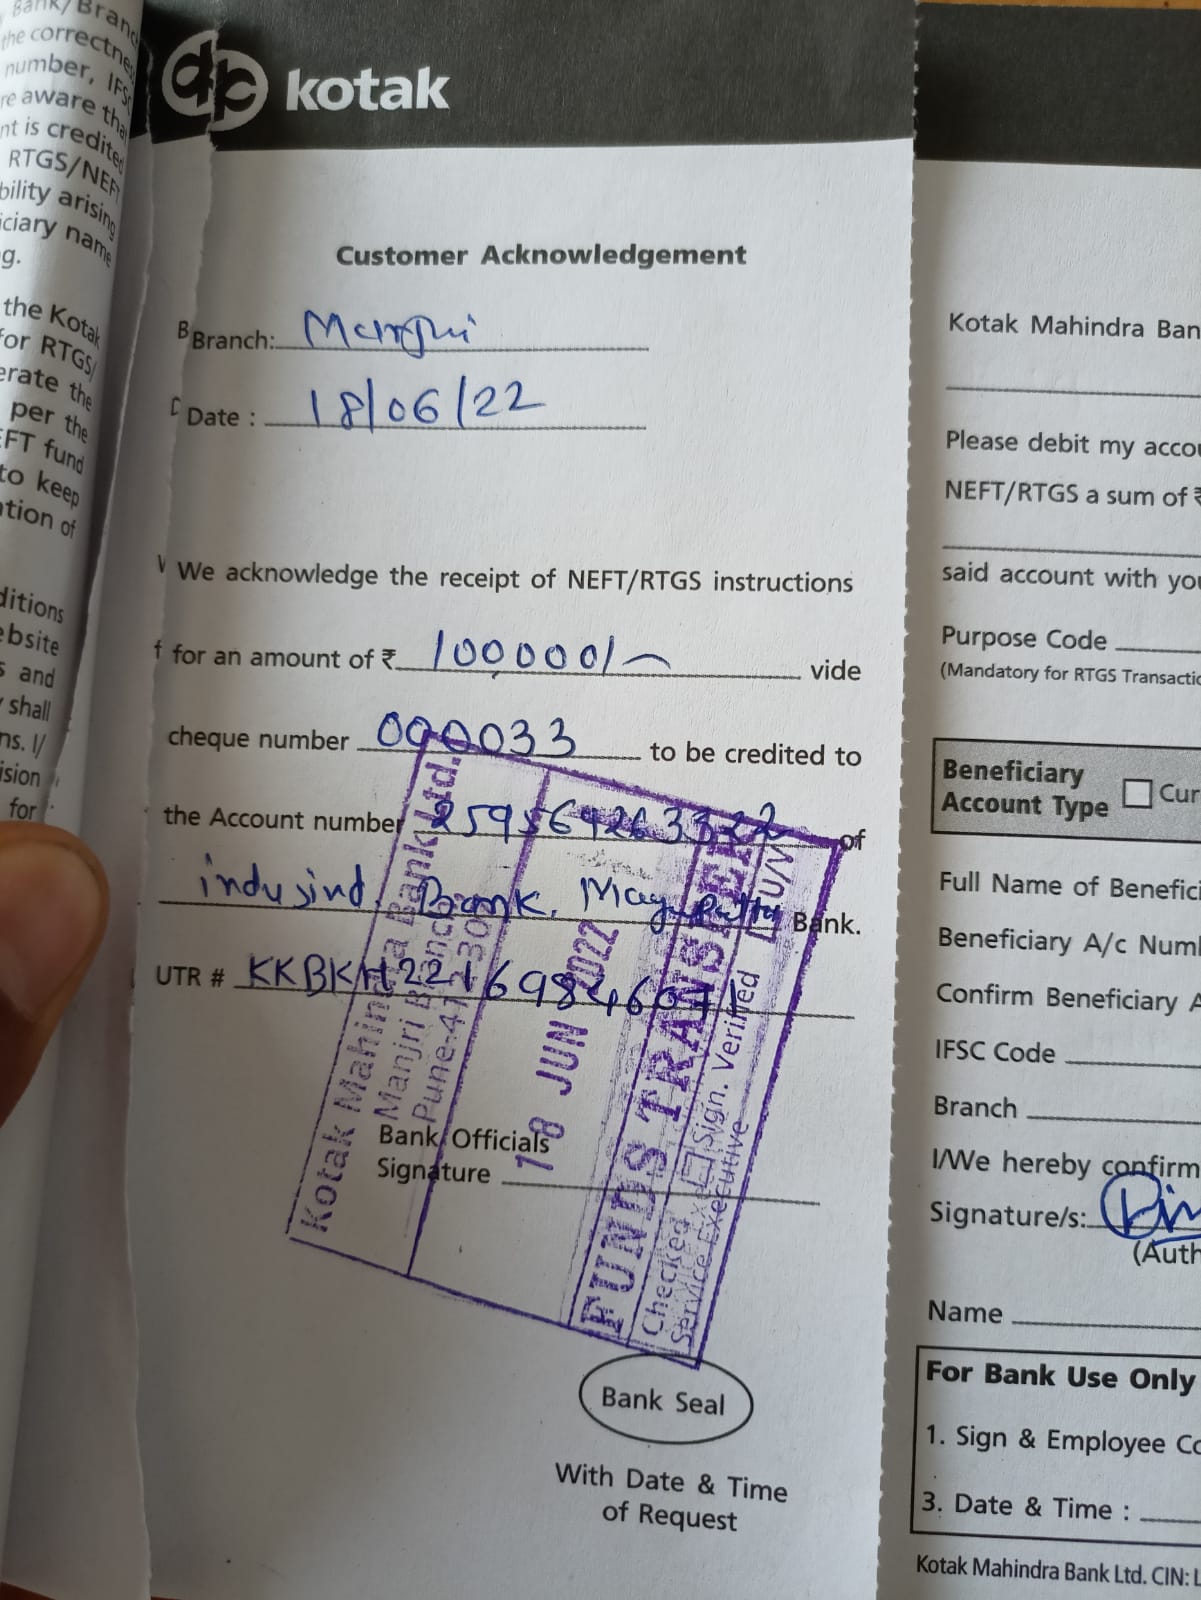 Bank/Branch
the correctness
number, IFSC
re aware that
nt is credited
RTGS/NEFT
bility arising
iciary name
g.
the Kotak
for RTGS/
erate the
per the
EFT fund
to keep
ation of
ditions
ebsite
s and
shall
ns. I/
ision
for
kotak
Customer Acknowledgement
Branch: Manjri
Date : 18/06/22
We acknowledge the receipt of NEFT/RTGS instructions
for an amount of ₹ 100000/- vide
cheque number 000033 to be credited to
the Account number 259564263322 of
indusind Bank, Bank.
UTR # KKBKH22169846071
Bank Officials
Signature
Kotak Mahindra Bank Ltd.
Manjri Branch
Pune-412 30
18 JUN 2022
FUNDS TRANSFER
Checked Sign. Verified U/V
Service Executive
Bank Seal
With Date & Time
of Request
Kotak Mahindra Ban
Please debit my accou
NEFT/RTGS a sum of ₹
said account with you
Purpose Code
(Mandatory for RTGS Transactio
Beneficiary
Account Type Cur
Full Name of Benefici
Beneficiary A/c Numb
Confirm Beneficiary A
IFSC Code
Branch
I/We hereby confirm
Signature/s:
(Auth
Name
For Bank Use Only
1. Sign & Employee Co
3. Date & Time :
Kotak Mahindra Bank Ltd. CIN: L